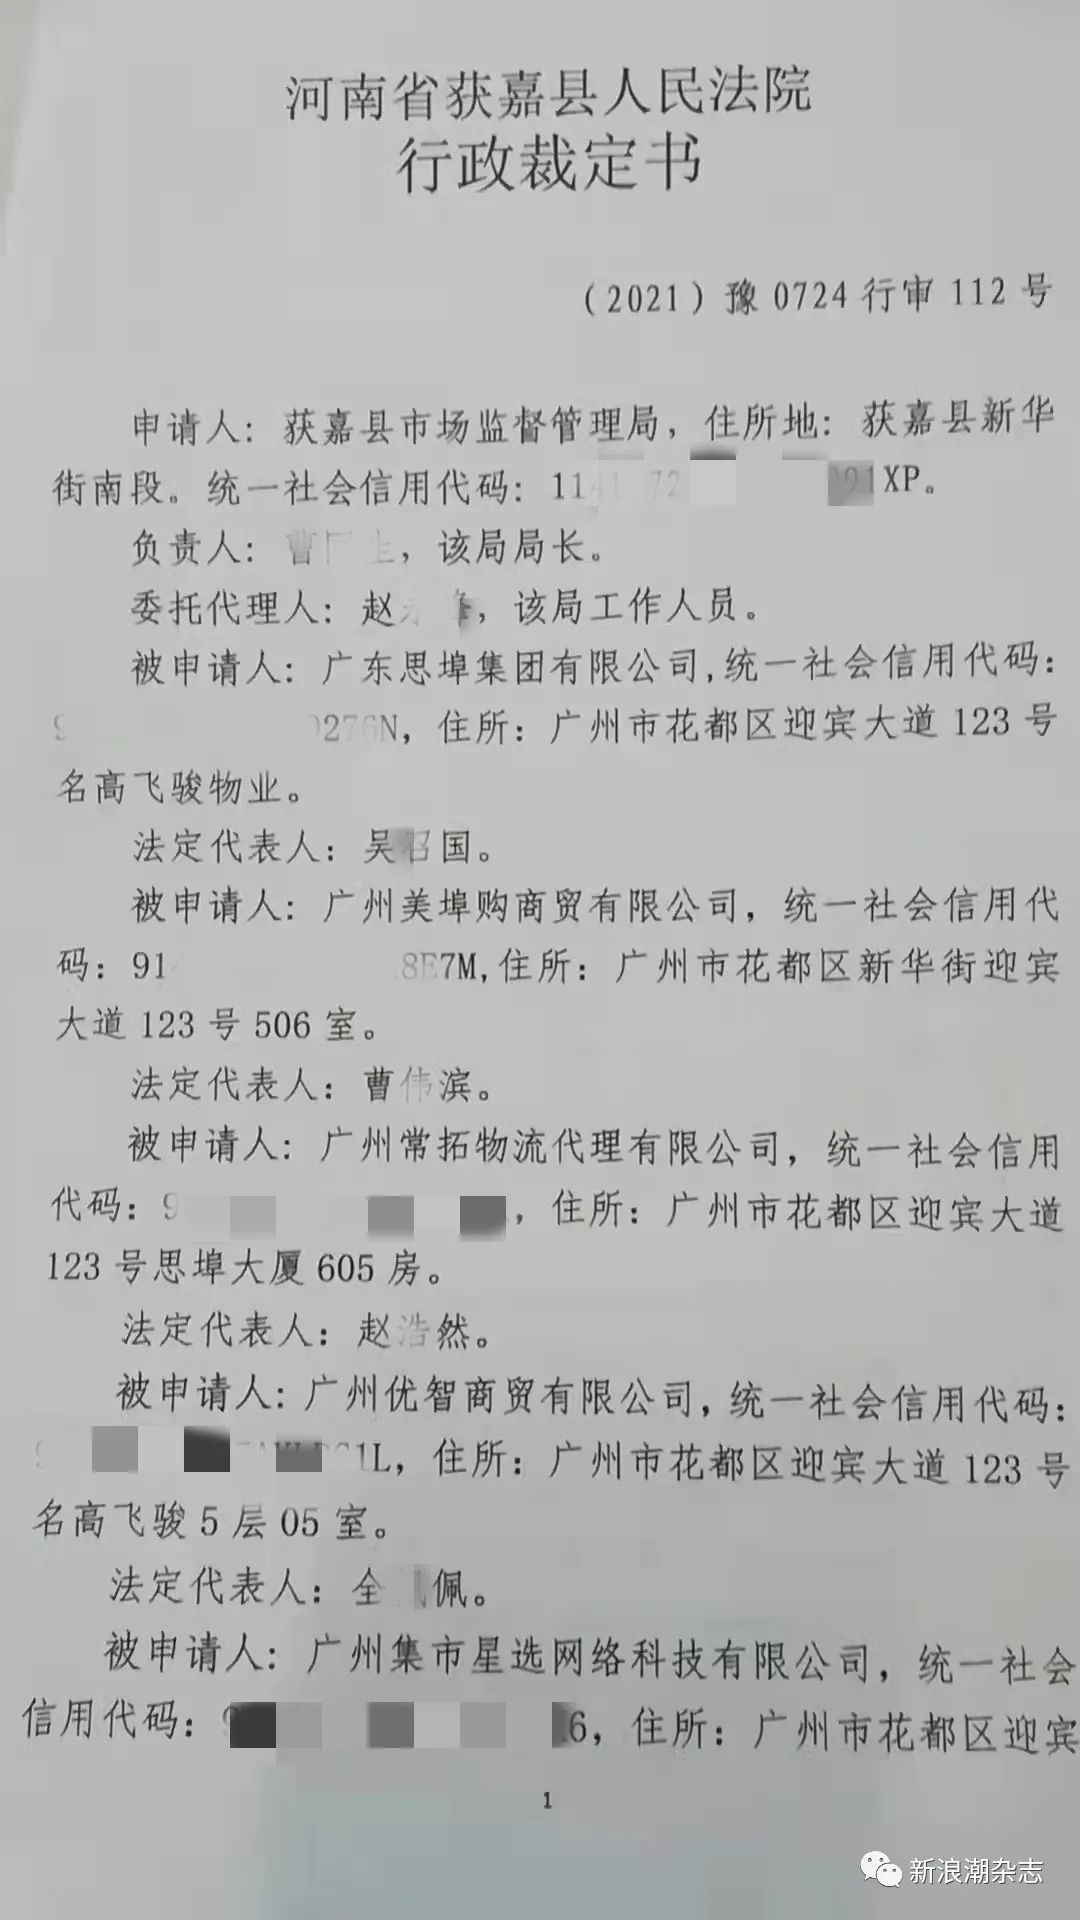 河南省获嘉县人民法院
行政裁定书
（2021）豫0724行审112号
申请人：获嘉县市场监督管理局，住所地：获嘉县新华
街南段。统一社会信用代码：11 91XP。
负责人：曹 生，该局局长。
委托代理人：赵 峰，该局工作人员。
被申请人：广东思埠集团有限公司,统一社会信用代码：
9 0276N，住所：广州市花都区迎宾大道123号
名高飞骏物业。
法定代表人：吴召国。
被申请人：广州美埠购商贸有限公司，统一社会信用代
码：91 8E7M,住所：广州市花都区新华街迎宾
大道123号506室。
法定代表人：曹伟滨。
被申请人：广州常拓物流代理有限公司，统一社会信用
代码：9 ，住所：广州市花都区迎宾大道
123号思埠大厦605房。
法定代表人：赵浩然。
被申请人：广州优智商贸有限公司,统一社会信用代码：
9 1L，住所：广州市花都区迎宾大道123号
名高飞骏5层05室。
法定代表人：全 佩。
被申请人：广州集市星选网络科技有限公司，统一社会
信用代码：9 6，住所：广州市花都区迎宾
1
新浪潮杂志